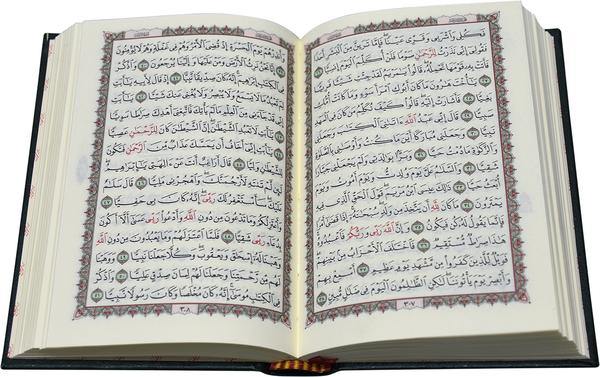 فَكُلِى وَٱشْرَبِى وَقَرِّى عَيْنًا ۖ فَإِمَّا تَرَيِنَّ مِنَ ٱلْبَشَرِ أَحَدًا
فَقُولِىٓ إِنِّى نَذَرْتُ لِلرَّحْمَٰنِ صَوْمًا فَلَنْ أُكَلِّمَ ٱلْيَوْمَ إِنسِيًّا ٢٦
فَأَتَتْ بِهِۦ قَوْمَهَا تَحْمِلُهُۥ ۖ قَالُوا۟ يَٰمَرْيَمُ لَقَدْ جِئْتِ شَيْـًٔا فَرِيًّا
٢٧ يَٰٓأُخْتَ هَٰرُونَ مَا كَانَ أَبُوكِ ٱمْرَأَ سَوْءٍ وَمَا كَانَتْ أُمُّكِ
بَغِيًّا ٢٨ فَأَشَارَتْ إِلَيْهِ ۖ قَالُوا۟ كَيْفَ نُكَلِّمُ مَن كَانَ فِى ٱلْمَهْدِ
صَبِيًّا ٢٩ قَالَ إِنِّى عَبْدُ ٱللَّهِ ءَاتَىٰنِىَ ٱلْكِتَٰبَ وَجَعَلَنِى
نَبِيًّا ٣٠ وَجَعَلَنِى مُبَارَكًا أَيْنَ مَا كُنتُ وَأَوْصَٰنِى بِٱلصَّلَوٰةِ
وَٱلزَّكَوٰةِ مَا دُمْتُ حَيًّا ٣١ وَبَرًّۢا بِوَٰلِدَتِى وَلَمْ يَجْعَلْنِى جَبَّارًا
شَقِيًّا ٣٢ وَٱلسَّلَٰمُ عَلَىَّ يَوْمَ وُلِدتُّ وَيَوْمَ أَمُوتُ وَيَوْمَ
أُبْعَثُ حَيًّا ٣٣ ذَٰلِكَ عِيسَى ٱبْنُ مَرْيَمَ ۚ قَوْلَ ٱلْحَقِّ ٱلَّذِى فِيهِ
يَمْتَرُونَ ٣٤ مَا كَانَ لِلَّهِ أَن يَتَّخِذَ مِن وَلَدٍ ۖ سُبْحَٰنَهُۥٓ ۚ إِذَا قَضَىٰٓ أَمْرًا
فَإِنَّمَا يَقُولُ لَهُۥ كُن فَيَكُونُ ٣٥ وَإِنَّ ٱللَّهَ رَبِّى وَرَبُّكُمْ فَٱعْبُدُوهُ ۚ
هَٰذَا صِرَٰطٌ مُّسْتَقِيمٌ ٣٦ فَٱخْتَلَفَ ٱلْأَحْزَابُ مِنۢ بَيْنِهِمْ ۖ
فَوَيْلٌ لِّلَّذِينَ كَفَرُوا۟ مِن مَّشْهَدِ يَوْمٍ عَظِيمٍ ٣٧ أَسْمِعْ بِهِمْ
وَأَبْصِرْ يَوْمَ يَأْتُونَنَا ۖ لَٰكِنِ ٱلظَّٰلِمُونَ ٱلْيَوْمَ فِى ضَلَٰلٍ مُّبِينٍ ٣٨
٣٠٧
وَأَنذِرْهُمْ يَوْمَ ٱلْحَسْرَةِ إِذْ قُضِىَ ٱلْأَمْرُ وَهُمْ فِى غَفْلَةٍ وَهُمْ لَا يُؤْمِنُونَ
٣٩ إِنَّا نَحْنُ نَرِثُ ٱلْأَرْضَ وَمَنْ عَلَيْهَا وَإِلَيْنَا يُرْجَعُونَ ٤٠ وَٱذْكُرْ
فِى ٱلْكِتَٰبِ إِبْرَٰهِيمَ ۚ إِنَّهُۥ كَانَ صِدِّيقًا نَّبِيًّا ٤١ إِذْ قَالَ لِأَبِيهِ يَٰٓأَبَتِ
لِمَ تَعْبُدُ مَا لَا يَسْمَعُ وَلَا يُبْصِرُ وَلَا يُغْنِى عَنكَ شَيْـًٔا ٤٢
يَٰٓأَبَتِ إِنِّى قَدْ جَآءَنِى مِنَ ٱلْعِلْمِ مَا لَمْ يَأْتِكَ فَٱتَّبِعْنِىٓ أَهْدِكَ صِرَٰطًا
سَوِيًّا ٤٣ يَٰٓأَبَتِ لَا تَعْبُدِ ٱلشَّيْطَٰنَ ۖ إِنَّ ٱلشَّيْطَٰنَ كَانَ لِلرَّحْمَٰنِ عَصِيًّا
٤٤ يَٰٓأَبَتِ إِنِّىٓ أَخَافُ أَن يَمَسَّكَ عَذَابٌ مِّنَ ٱلرَّحْمَٰنِ فَتَكُونَ
لِلشَّيْطَٰنِ وَلِيًّا ٤٥ قَالَ أَرَاغِبٌ أَنتَ عَنْ ءَالِهَتِى يَٰٓإِبْرَٰهِيمُ ۖ
لَئِن لَّمْ تَنتَهِ لَأَرْجُمَنَّكَ ۖ وَٱهْجُرْنِى مَلِيًّا ٤٦ قَالَ سَلَٰمٌ
عَلَيْكَ ۖ سَأَسْتَغْفِرُ لَكَ رَبِّىٓ ۖ إِنَّهُۥ كَانَ بِى حَفِيًّا ٤٧
وَأَعْتَزِلُكُمْ وَمَا تَدْعُونَ مِن دُونِ ٱللَّهِ وَأَدْعُوا۟ رَبِّى عَسَىٰٓ أَلَّآ أَكُونَ
بِدُعَآءِ رَبِّى شَقِيًّا ٤٨ فَلَمَّا ٱعْتَزَلَهُمْ وَمَا يَعْبُدُونَ مِن دُونِ ٱللَّهِ
وَهَبْنَا لَهُۥٓ إِسْحَٰقَ وَيَعْقُوبَ ۖ وَكُلًّا جَعَلْنَا نَبِيًّا ٤٩ وَوَهَبْنَا
لَهُم مِّن رَّحْمَتِنَا وَجَعَلْنَا لَهُمْ لِسَانَ صِدْقٍ عَلِيًّا ٥٠ وَٱذْكُرْ
فِى ٱلْكِتَٰبِ مُوسَىٰٓ ۚ إِنَّهُۥ كَانَ مُخْلَصًا وَكَانَ رَسُولًا نَّبِيًّا ٥١
٣٠٨